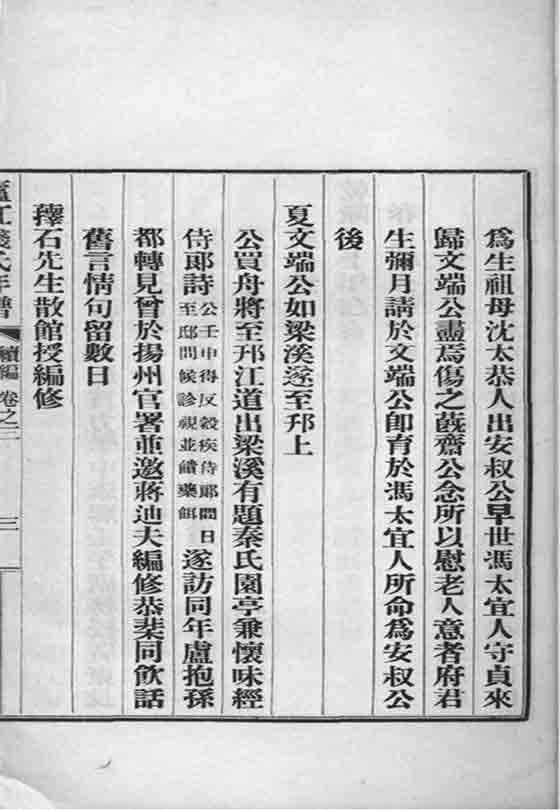 爲生祖母沈太恭人出安叔公早世馮太宜人守貞來
歸文端公盡焉傷之蕺齋公念所以慰老人意者府君
生彌月請於文端公卽育於馮太宜人所命爲安叔公
後
夏文端公如梁溪遂至邗上
公買舟將至邗江道出梁溪有題秦氏園亭兼懷味經
侍郞詩公壬申得反穀疾侍郞間日至邸問候診視並饋藥餌遂訪同年盧抱孫
都轉見曾於揚州官署並邀蔣迪夫編修恭棐同飮話
舊言情句留數日
蘀石先生散館授編修
廬江錢氏年譜 續編 卷之三 三